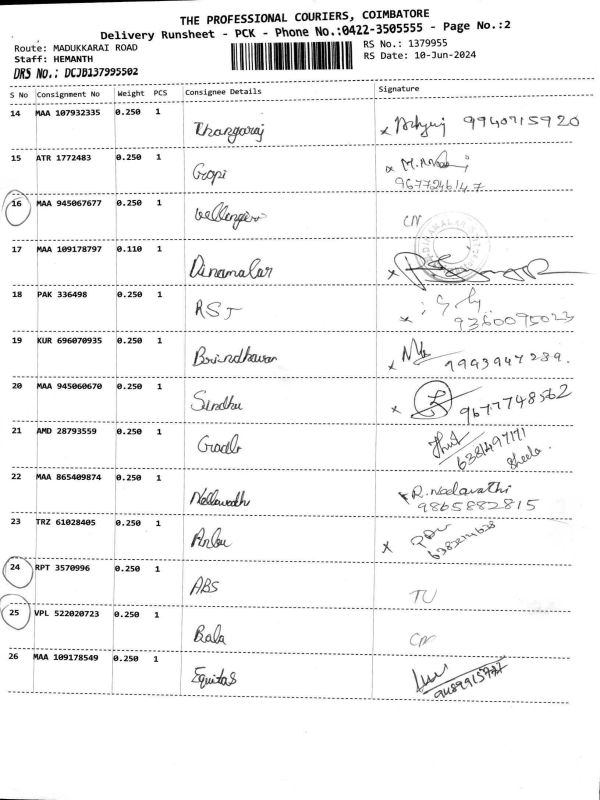 THE PROFESSIONAL COURIERS, COIMBATORE
Delivery Runsheet - PCK - Phone No.:0422-3505555 - Page No.:2
Route: MADUKKARAI ROAD
RS No.: 1379955
Staff: HEMANTH
RS Date: 10-Jun-2024
DRS No.: DCJB137995502
S No Consignment No Weight PCS Consignee Details Signature
14 MAA 107932335 0.250 1 Thangaraj x 9940715920
15 ATR 1772483 0.250 1 Gopi x
9677246147
16 MAA 945067677 0.250 1 CN
17 MAA 109178797 0.110 1 Dinamalar x
18 PAK 336498 0.250 1 RST
x 9360095023
19 KUR 696070935 0.250 1 Brindhavan x 9993947289.
20 MAA 945060670 0.250 1 Sindhu x 9677748562
21 AMD 28793559 0.250 1
6381497171
Sheela.
22 MAA 865409874 0.250 1 R. Neelavathi
9865882815
23 TRZ 61028405 0.250 1 Anbu x
24 RPT 3570996 0.250 1 ABS TU
25 VPL 522020723 0.250 1 Bala CN
26 MAA 109178549 0.250 1 Equitas